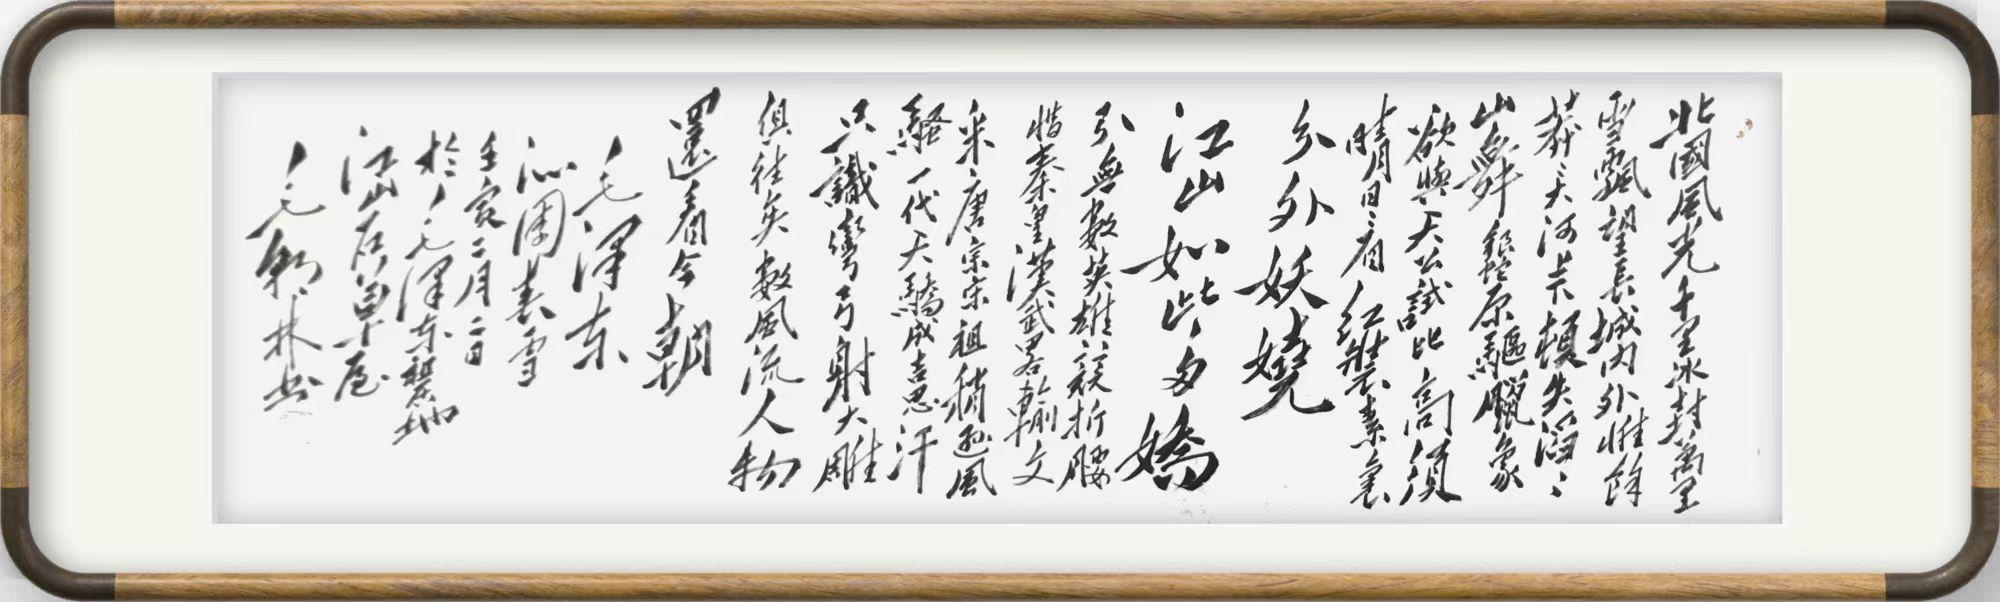 北國風光千里冰封萬里
雪飄望長城内外惟餘
莽〻大河上下頓失滔〻
山舞銀蛇原驅臘象
欲與天公試比高須
晴日〻看紅裝素裹
分外妖嬈
江山如此多嬌
引無數英雄〻競折腰
惜秦皇漢武畧輸文
采唐宗宋祖稍遜風
騷一代天驕成吉思汗
只識彎弓射大雕
俱往矣數風流人物
還看今朝
毛澤東
沁園春雪
壬寅二月二日
於毛澤東
江山石草屋
毛 林书